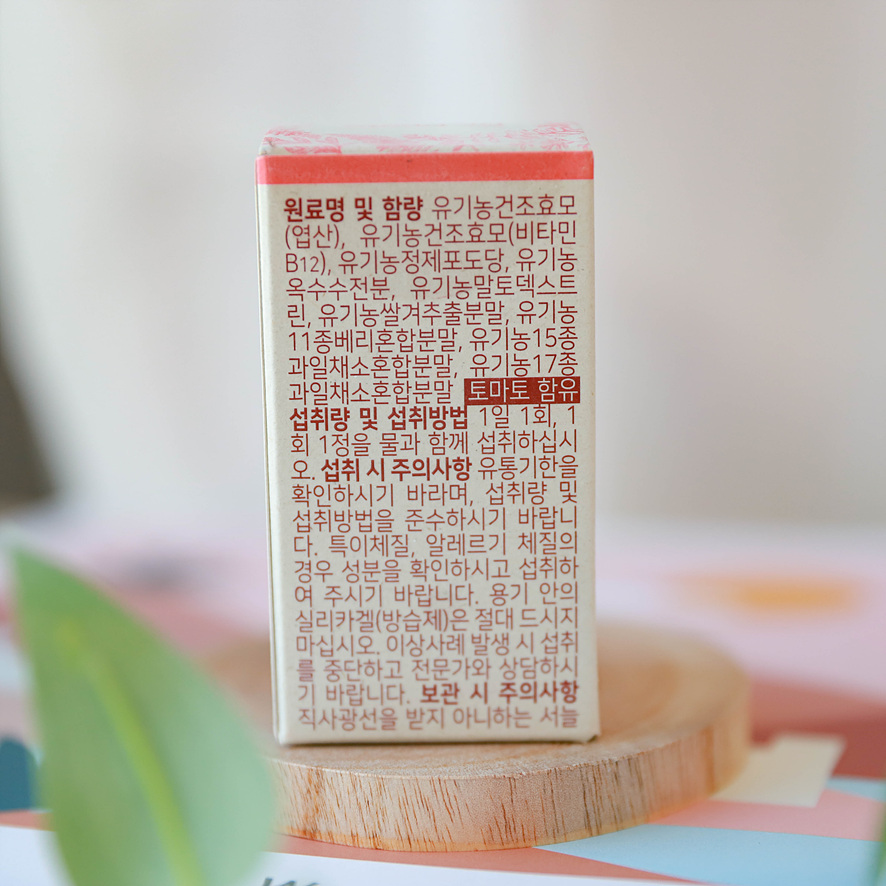 원료명 및 함량 유기농건조효모
(엽산), 유기농건조효모(비타민
B12), 유기농정제포도당, 유기농
옥수수전분, 유기농말토덱스트
린, 유기농쌀겨추출분말, 유기농
11종베리혼합분말, 유기농15종
과일채소혼합분말, 유기농17종
과일채소혼합분말 토마토 함유
섭취량 및 섭취방법 1일 1회, 1
회 1정을 물과 함께 섭취하십시
오. 섭취 시 주의사항 유통기한을
확인하시기 바라며, 섭취량 및
섭취방법을 준수하시기 바랍니
다. 특이체질, 알레르기 체질의
경우 성분을 확인하시고 섭취하
여 주시기 바랍니다. 용기 안의
실리카겔(방습제)은 절대 드시지
마십시오. 이상사례 발생 시 섭취
를 중단하고 전문가와 상담하시
기 바랍니다. 보관 시 주의사항
직사광선을 받지 아니하는 서늘